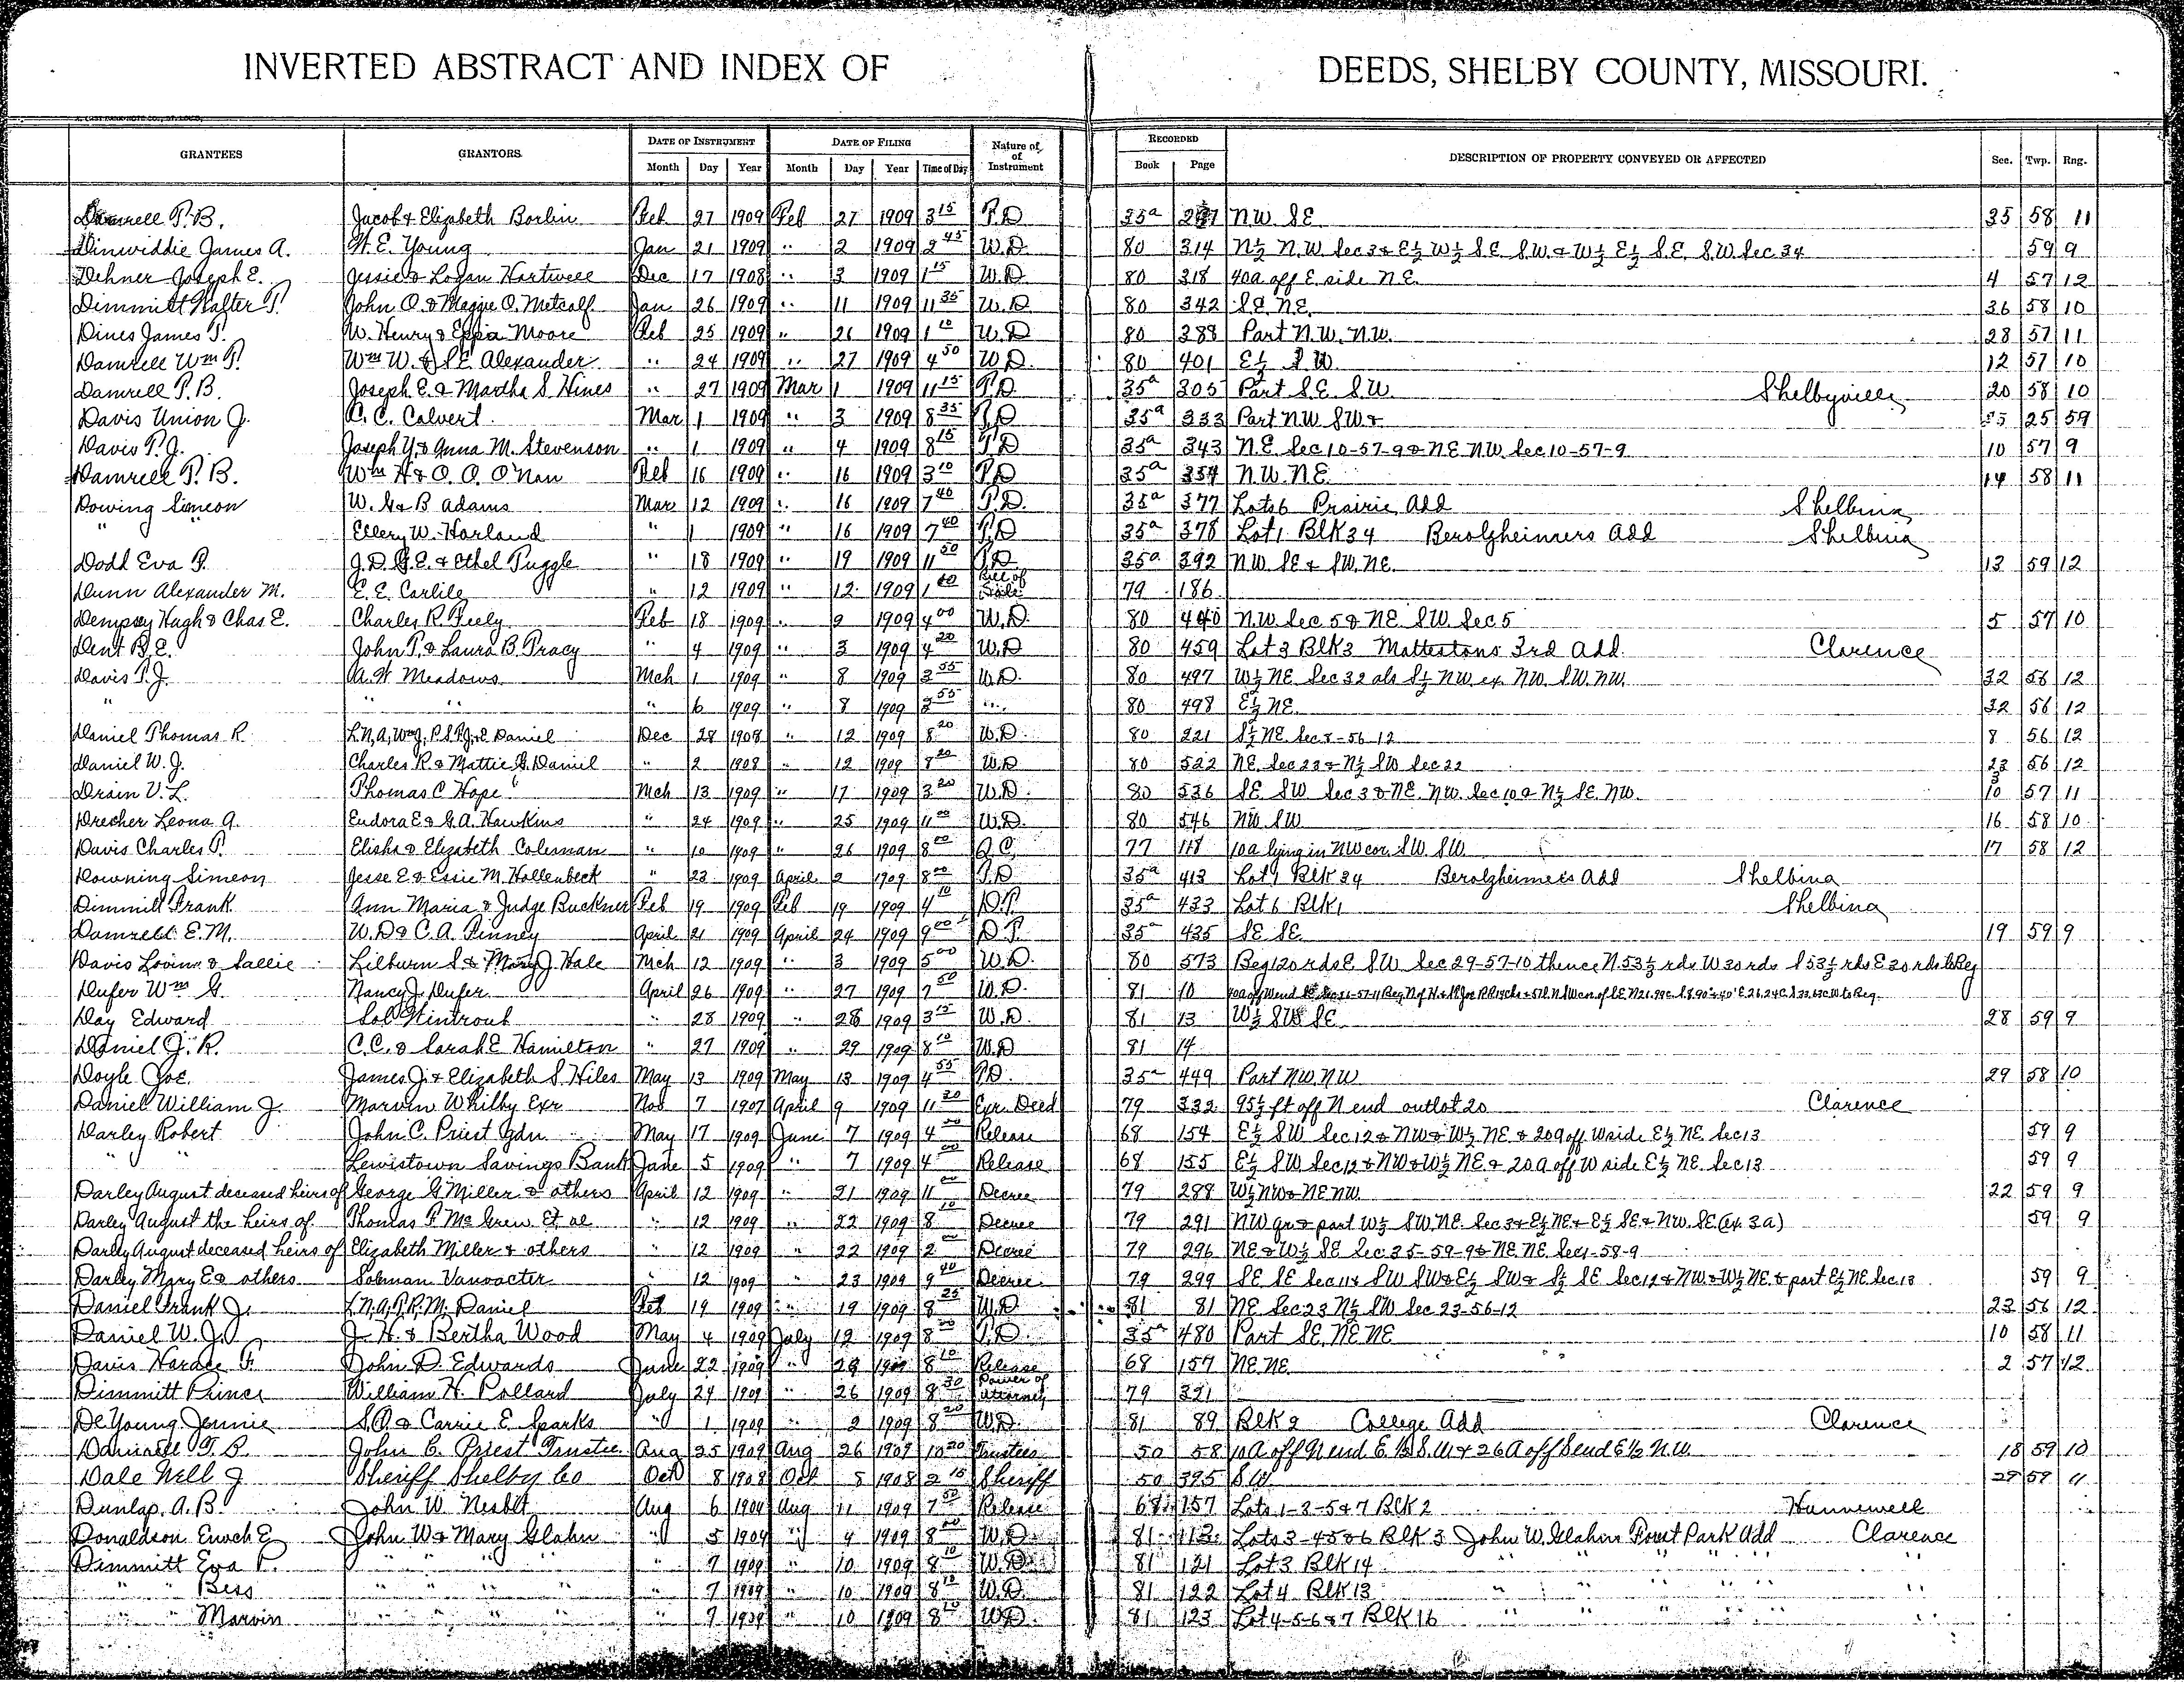 INVERTED ABSTRACT AND INDEX OF DEEDS, SHELBY COUNTY, MISSOURI.
GRANTEES GRANTORS DATE OF INSTRUMENT DATE OF FILING Nature of of Instrument RECORDED DESCRIPTION OF PROPERTY CONVEYED OR AFFECTED Sec. Twp. Rng.
Month Day Year Month Day Year Time of Day Book Page
Damrell P.B. Jacob & Elizabeth Borlin Feb 27 1909 Feb 27 1909 3 15 T.D 35a N.W. SE 35 58 11
Dinwiddie James A. W.E. Young Jan 21 1909 " 2 1909 2 45 W.D. 80 314 N½ N.W Sec 3 & E½ W½ S.E. S.W. & W½ E½ S.E. S.W Sec 34 59 9
Dehner Joseph E. Jessie & Logan Hartwell Dec 17 1908 " 3 1909 1 15 W.D. 80 318 40a off E. side N.E. 4 57 12
Dimmitt Walter P. John O. & Maggie O. Metcalf Jan 26 1909 " 11 1909 11 35 W.D 80 342 S.E. N.E. 36 58 10
Dines James T. W. Henry & Eppia Moore Feb 25 1909 " 26 1909 1 10 W.D 80 388 Part N.W. N.W. 28 57 11
Damrell Wm P. Wm W. & S.E. Alexander " 24 1909 " 27 1909 4 50 W.D 80 401 E½ S.W. 12 57 10
Damrell P.B. Joseph E. & Martha S. Hines " 27 1909 Mar 1 1909 11 15 T.D 35a 305 Part S.E. S.W. Shelbyville 20 58 10
Davis Union J. C.C. Calvert Mar 1 1909 " 3 1909 8 35 T.D 35a 333 Part NW SW & 25 59
Davis P.J. Joseph Y. & Anna M. Stevenson " 1 1909 " 4 1909 8 15 T.D 35a 343 N.E. Sec 10-57-9 & N.E. N.W. Sec 10-57-9 10 57 9
Damrell P.B. Wm H & O.O. O'Nan Feb 16 1909 " 16 1909 3 10 T.D 35a 354 N.W. N.E. 14 58 11
Dowing Simeon W.G. & B Adams Mar 12 1909 " 16 1909 7 40 T.D. 35a 377 Lots 6 Prairie Add Shelbina
" Ellery W. Harland " 1 1909 " 16 1909 7 40 T.D 35a 378 Lot 1 Blk 34 Berolzheimers Add Shelbina
Dodd Eva P. J.D. G.E. & Ethel Tuggle " 18 1909 " 19 1909 11 50 T.D. 35a 392 N.W. S.E & S.W. N.E. 13 59 12
Dunn Alexander M. E.E. Carlile " 12 1909 " 12 1909 1 40 Bill of Sale 79 186
Dempsey Hugh & Chas E. Charles R. Feely Feb 18 1909 " 2 1909 4 00 W.D. 80 440 N.W Sec 5 & N.E. S.W. Sec 5 5 57 10
Dent B.E. John T. & Laura B. Tracy " 4 1909 " 3 1909 4 20 W.D 80 459 Lot 3 Blk 3 Mattestons 3rd Add Clarence
Davis P.J. A.H. Meadows Mch 1 1909 " 8 1909 3 55 W.D. 80 497 W½ NE. Sec 32 als S½ N.W. ex. N.W. S.W. N.W. 32 56 12
" " " " 6 1909 " 8 1909 3 55 " 80 498 E½ N.E. 32 56 12
Daniel Thomas R. Daniel Dec 28 1908 " 12 1909 8 20 W.D. 80 221 S½ N.E. Sec 8-56-12 8 56 12
Daniel W.J. Charles R. & Mattie G. Daniel " 2 1908 " 12 1909 8 20 W.D 80 522 N.E. Sec 23 & N½ S.W. Sec 22 23 56 12
Drain V.L. Thomas C. Hope Mch 13 1909 " 17 1909 3 20 W.D. 80 536 S.E. S.W. Sec 3 & N.E. N.W. Sec 10 & N½ S.E. N.W. 3 10 57 11
Drecher Leona A. Eudora E & G.A. Hawkins " 24 1909 " 25 1909 11 00 W.D. 80 546 N.W. S.W 16 58 10
Davis Charles P. Elisha & Elizabeth Coleman " 10 1909 " 26 1909 8 00 Q.C. 77 118 10a lying in NW cor. S.W. S.W. 17 58 12
Downing Simeon Jesse E. & Essie M. Hollenbeck " 23 1909 April 2 1909 8 00 T.D 35a 413 Lot 1 Blk 34 Berolzheimers Add Shelbina
Dimmitt Frank Ann Maria & Judge Buckner Feb 19 1909 Feb 19 1909 4 10 D.T. 35a 433 Lot 6 Blk 1 Shelbina
Damrell E.M. W.D. & C.A. Pinney April 21 1909 April 24 1909 9 00 D.T. 35a 435 S.E. S.E. 19 59 9
Davis Lovina & Sallie Lilburn S. & Mary J. Hale Mch 12 1909 " 3 1909 5 00 W.D. 80 573 Beg 120 rds E. S.W. Sec 29-57-10 thence N 53½ rds W 30 rds S 53½ rds E 30 rds to Beg
Dufer Wm G. Nancy J. Dufer April 26 1909 " 27 1909 7 50 W.D. 81 10
Day Edward Sol Hintrout " 28 1909 " 28 1909 3 15 W.D. 81 13 W½ S.W. S.E. 28 59 9
Daniel J.R. C.C. & Sarah E Hamilton " 27 1909 " 29 1909 8 10 W.D 81 14
Doyle Joe. James J. & Elizabeth S. Hiles May 13 1909 May 13 1909 4 55 T.D. 35a 449 Part N.W. N.W 29 58 10
Daniel William J. Marvin Whilby Exr Nov 7 1907 April 9 1909 11 20 Exr. Deed 79 332 95½ ft off N end outlot 20 Clarence
Darley Robert John C. Priest Gdn May 17 1909 June 7 1909 4 00 Release 68 154 E½ S.W Sec 12 & N.W & W½ N.E. & 20a off W side E½ N.E. Sec 13 59 9
" " Lewistown Savings Bank June 5 1909 " 7 1909 4 00 Release 68 155 E½ S.W Sec 12 & N.W & W½ N.E. & 20a off W side E½ N.E. Sec 13 59 9
Darley August deceased heirs of George G Miller & others April 12 1909 " 21 1909 11 00 Decree 79 288 W½ N.W & N.E. N.W. 22 59 9
Darley August the heirs of Thomas F McGrew Et al " 12 1909 " 22 1909 8 10 Decree 79 291 N.W qr & part W½ S.W. N.E. Sec 3 & E½ N.E. & E½ S.E & N.W. S.E. (ex. 3a) 59 9
Darley August deceased heirs of Elizabeth Miller & others " 12 1909 " 22 1909 2 00 Decree 79 296 N.E & W½ S.E Sec 35-59-9 & N.E. N.E. Sec 1-58-9
Darley Mary E & others Solman Vanvacter " 12 1909 " 23 1909 9 40 Decree 79 299 S.E. S.E. Sec 11 & S.W S.W & E½ S.W & S½ S.E. Sec 12 & N.W & W½ N.E. & part E½ N.E. Sec 13 59 9
Daniel Frank J. Daniel Feb 19 1909 " 19 1909 8 25 W.D 81 81 N.E. Sec 23 N½ S.W Sec 23-56-12 23 56 12
Daniel W.J. J.H. & Bertha Wood May 4 1909 July 12 1909 8 T.D. 35a 480 Part S.E. N.E. N.E. 10 58 11
Davis Horace F. John D. Edwards June 22 1909 " 28 1909 8 10 Release 68 157 N.E. N.E. 2 57 12
Dimmitt Prince William H. Pollard July 24 1909 " 26 1909 8 30 Power of Attorney 79 321
DeYoung Jennie S.A. & Carrie E. Sparks " 1 1909 " 2 1909 8 20 W.D. 81 89 Blk 2 College Add Clarence
Damrell T.B. John C. Priest Trustee Aug 25 1909 Aug 26 1909 10 20 Trustees 50 58 10A off N end E.½ S.W & 26A off S end E½ N.W. 18 59 10
Dale Nell J Sheriff Shelby Co Oct 8 1908 Oct 8 1908 2 15 Sheriff 50 395 S.W 58 11
Dunlap A.B. John W. Nesbit Aug 6 1909 Aug 11 1909 7 50 Release 68 157 Lots 1-3-5 & 7 Blk 2 Hunnewell
Donaldson Enoch E. John W & Mary Glahn " 5 1909 " 9 1909 8 00 W.D. 81 113 Lots 3-4-5 & 6 Blk 3 John W. Glahn Forest Park Add Clarence
Dimmitt Eva P. " " " " " 7 1909 " 10 1909 8 10 W.D. 81 121 Lot 3 Blk 14 " " " " "
" " Bess " " " " " 7 1909 " 10 1909 8 10 W.D. 81 122 Lot 4 Blk 13 " " " " "
" " Marvin " " " " " 7 1909 " 10 1909 8 10 W.D. 81 123 Lot 4-5-6 & 7 Blk 16 " " " " "